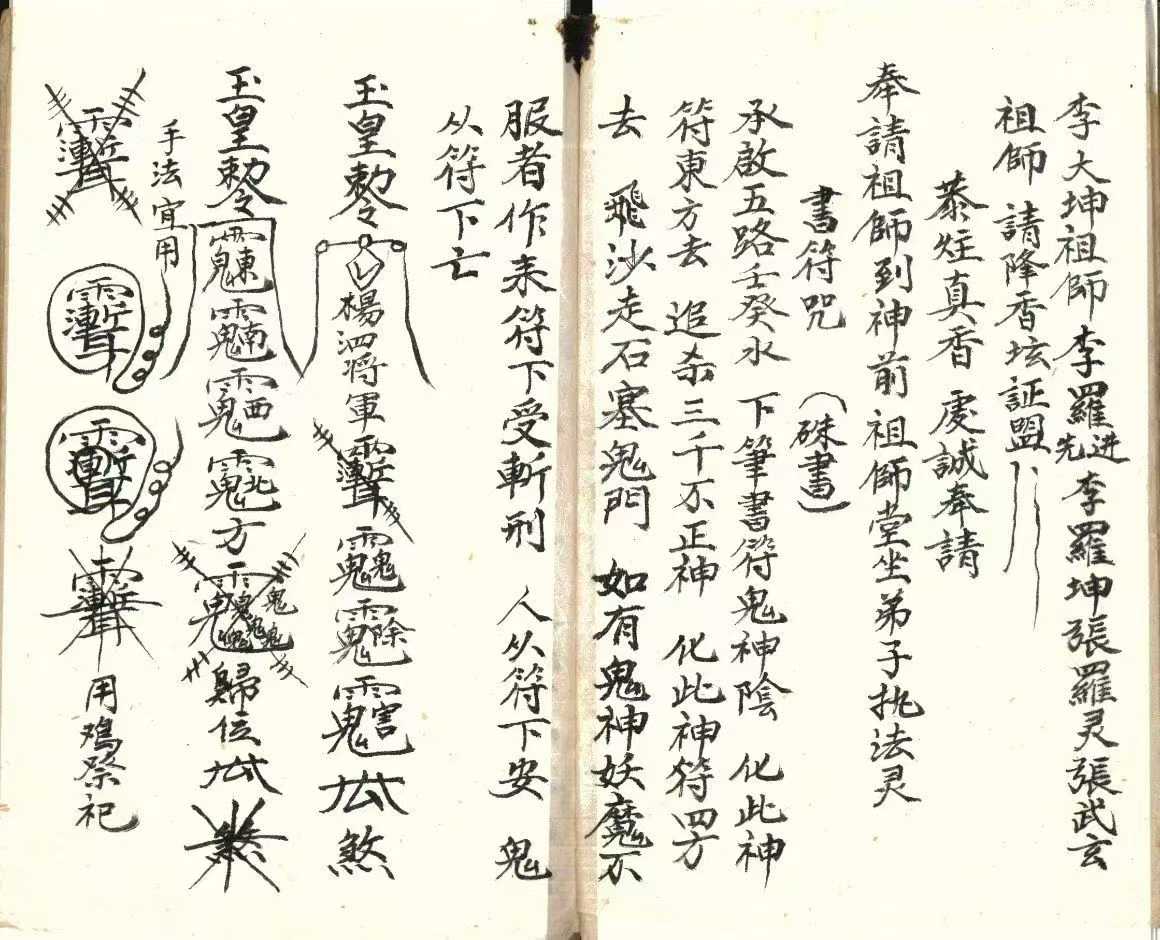 李大坤祖師 李羅先进 李羅坤張羅灵張武玄
祖師 請降香坛証盟
恭炷真香 虔誠奉請
奉請祖師到神前祖師堂坐弟子执法灵
書符咒 （硃書）
承啟五路壬癸水 下筆書符鬼神陰 化此神
符東方去 追杀三千不正神 化此神符四方
去 飛沙走石塞鬼門 如有鬼神妖魔不
服者作来符下受斬刑 人从符下安 鬼
从符下亡
玉皇勅令 楊泗将軍 煞
玉皇勅令 方 歸位 煞
手法宜用
用鸡祭祀